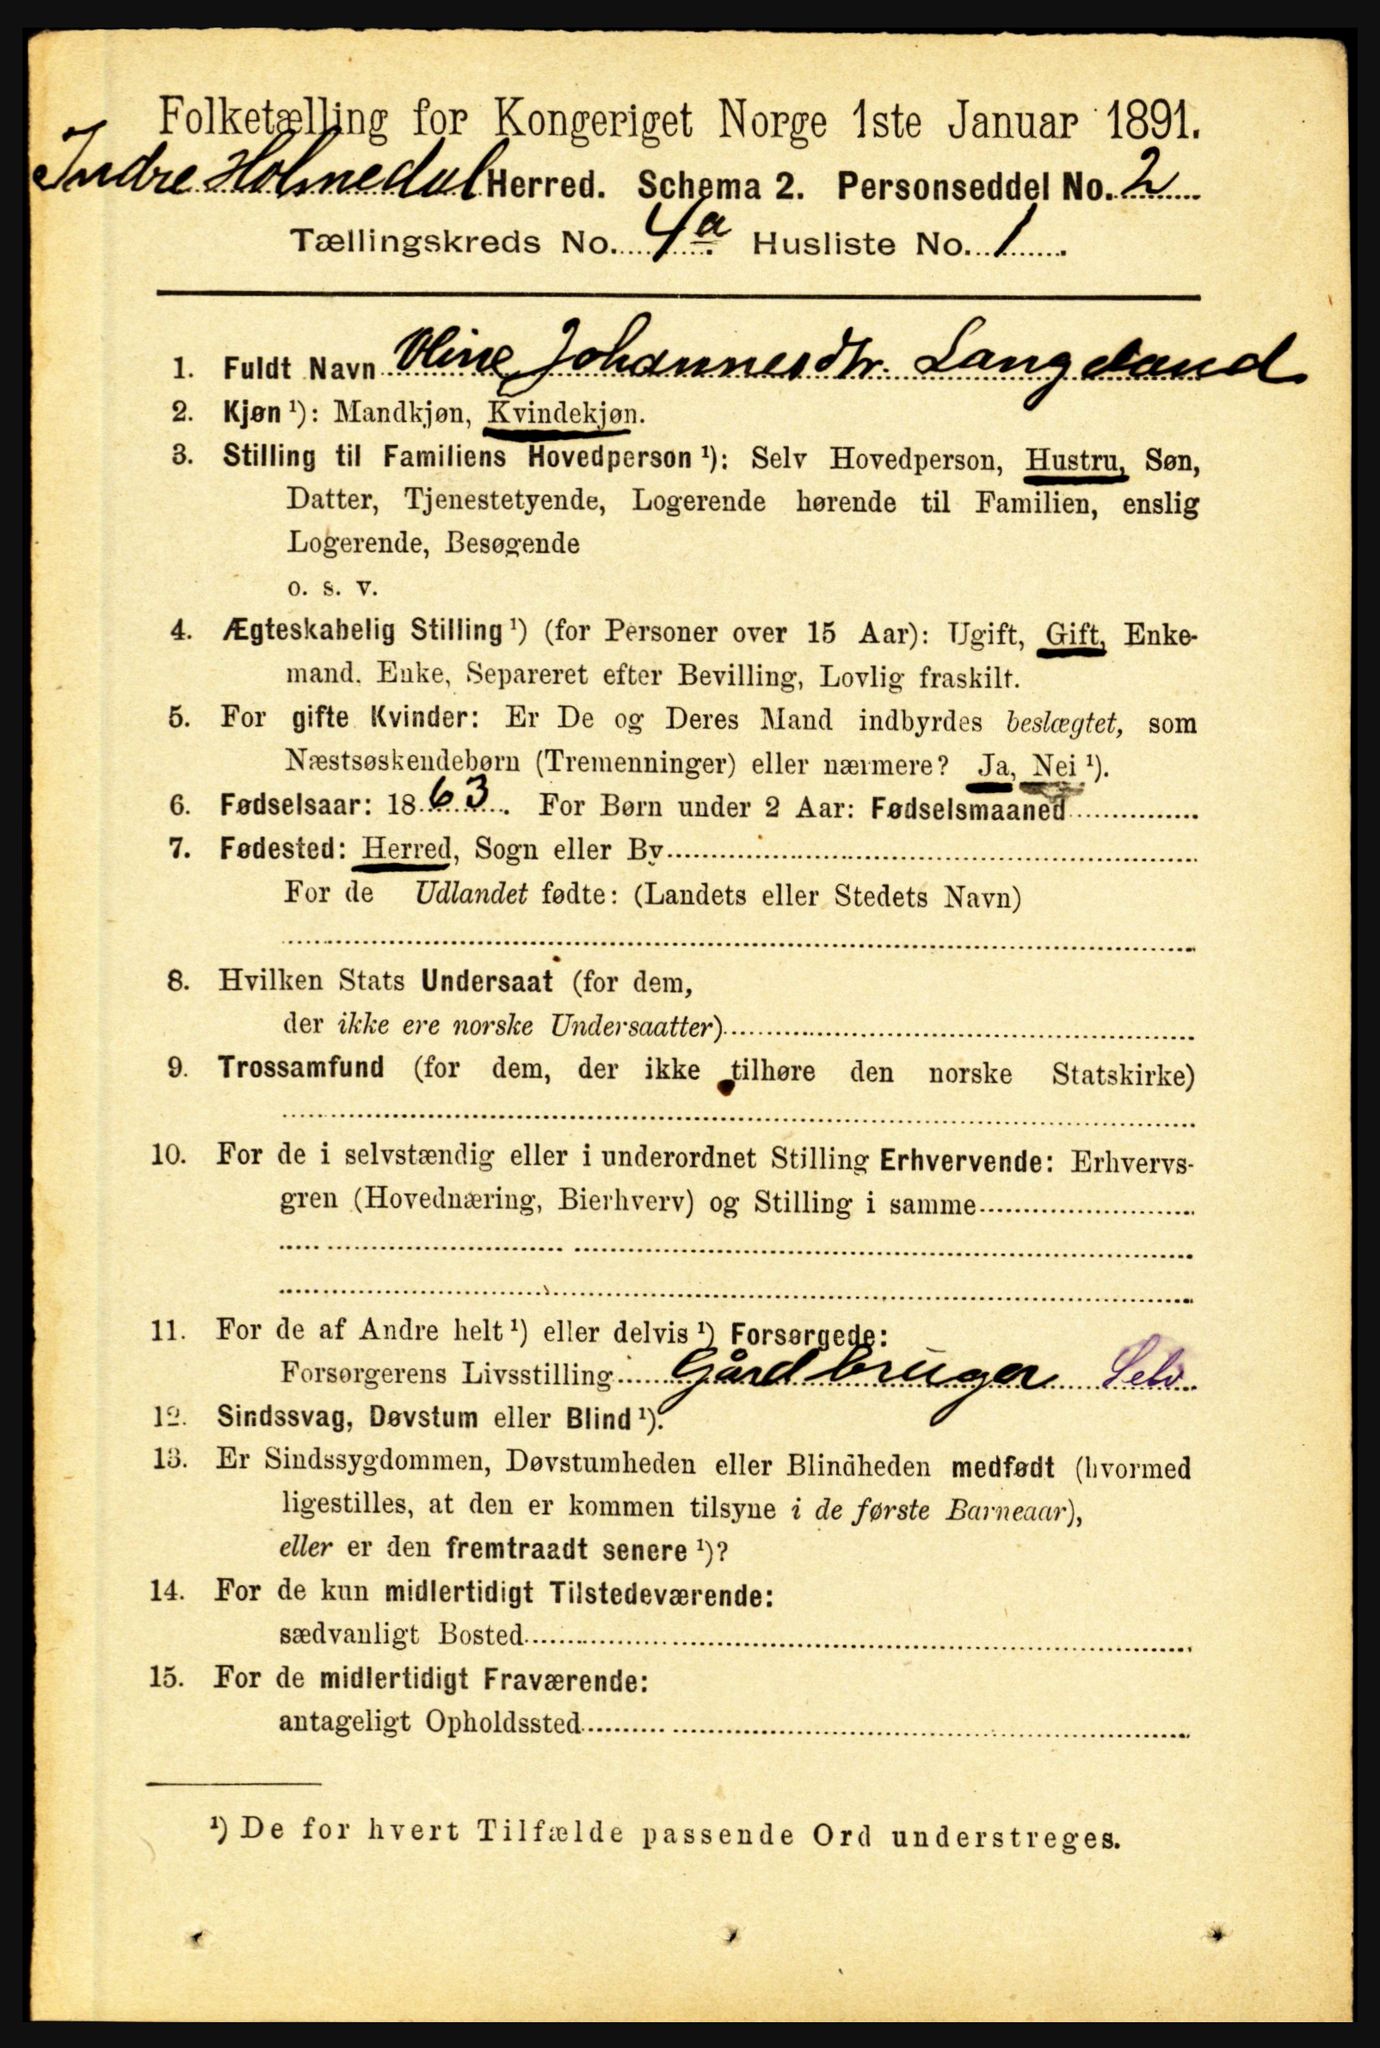 Folketælling for Kongeriget Norge 1ste Januar 1891.
Indre Holmedal Herred. Schema 2. Personseddel No. 2
Tællingskreds No. 4a Husliste No. 1
1. Fuldt Navn Oline Johannesdtr. Langeland
2. Kjøn ¹): Mandkjøn, Kvindekjøn.
3. Stilling til Familiens Hovedperson ¹): Selv Hovedperson, Hustru, Søn,
Datter, Tjenestetyende, Logerende hørende til Familien, enslig
Logerende, Besøgende
o. s. v.
4. Ægteskabelig Stilling ¹) (for Personer over 15 Aar): Ugift, Gift, Enke-
mand, Enke, Separeret efter Bevilling, Lovlig fraskilt.
5. For gifte Kvinder: Er De og Deres Mand indbyrdes beslægtet, som
Næstsøskendebørn (Tremenninger) eller nærmere? Ja, Nei ¹).
6. Fødselsaar: 1863. For Børn under 2 Aar: Fødselsmaaned
7. Fødested: Herred, Sogn eller By
For de Udlandet fødte: (Landets eller Stedets Navn)
8. Hvilken Stats Undersaat (for dem,
der ikke ere norske Undersaatter)
9. Trossamfund (for dem, der ikke tilhøre den norske Statskirke)
10. For de i selvstændig eller i underordnet Stilling Erhvervende: Erhvervs-
gren (Hovednæring, Bierhverv) og Stilling i samme
11. For de af Andre helt ¹) eller delvis ¹) Forsørgede:
Forsørgerens Livsstilling Gårdbruger Selv
12. Sindssvag, Døvstum eller Blind ¹).
13. Er Sindssygdommen, Døvstumheden eller Blindheden medfødt (hvormed
ligestilles, at den er kommen tilsyne i de første Barneaar),
eller er den fremtraadt senere ¹)?
14. For de kun midlertidigt Tilstedeværende:
sædvanligt Bosted
15. For de midlertidigt Fraværende:
antageligt Opholdssted
¹) De for hvert Tilfælde passende Ord understreges.